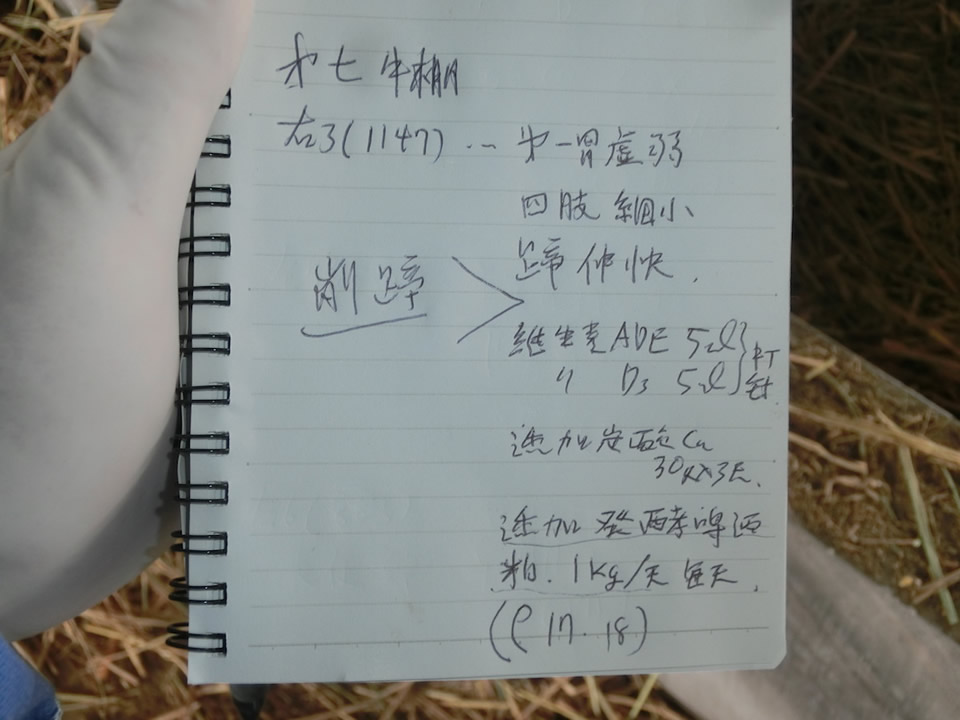 第七牛棚
右3(1147) … 第一胃虛弱
四肢 細小
削蹄 蹄伸快.
維生素ADE 5cc
〃 D3 5cc 打針
添加炭酸Ca
30g×3天.
添加發酵啤酒
粕. 1Kg/天 每天.
(P 17. 18)